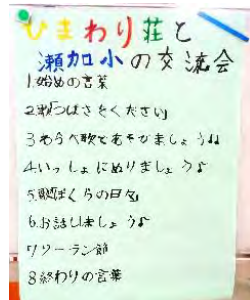 ひまわり荘と
瀬加小の交流会
1.始めの言葉
2.歌「つばさをください」
3.わらべ歌であそびましょう♪
4.いっしょにぬりましょう♪
5.歌「ぼくらの日々」
6.お話しましょう♪
7.ソーラン節
8.終わりの言葉